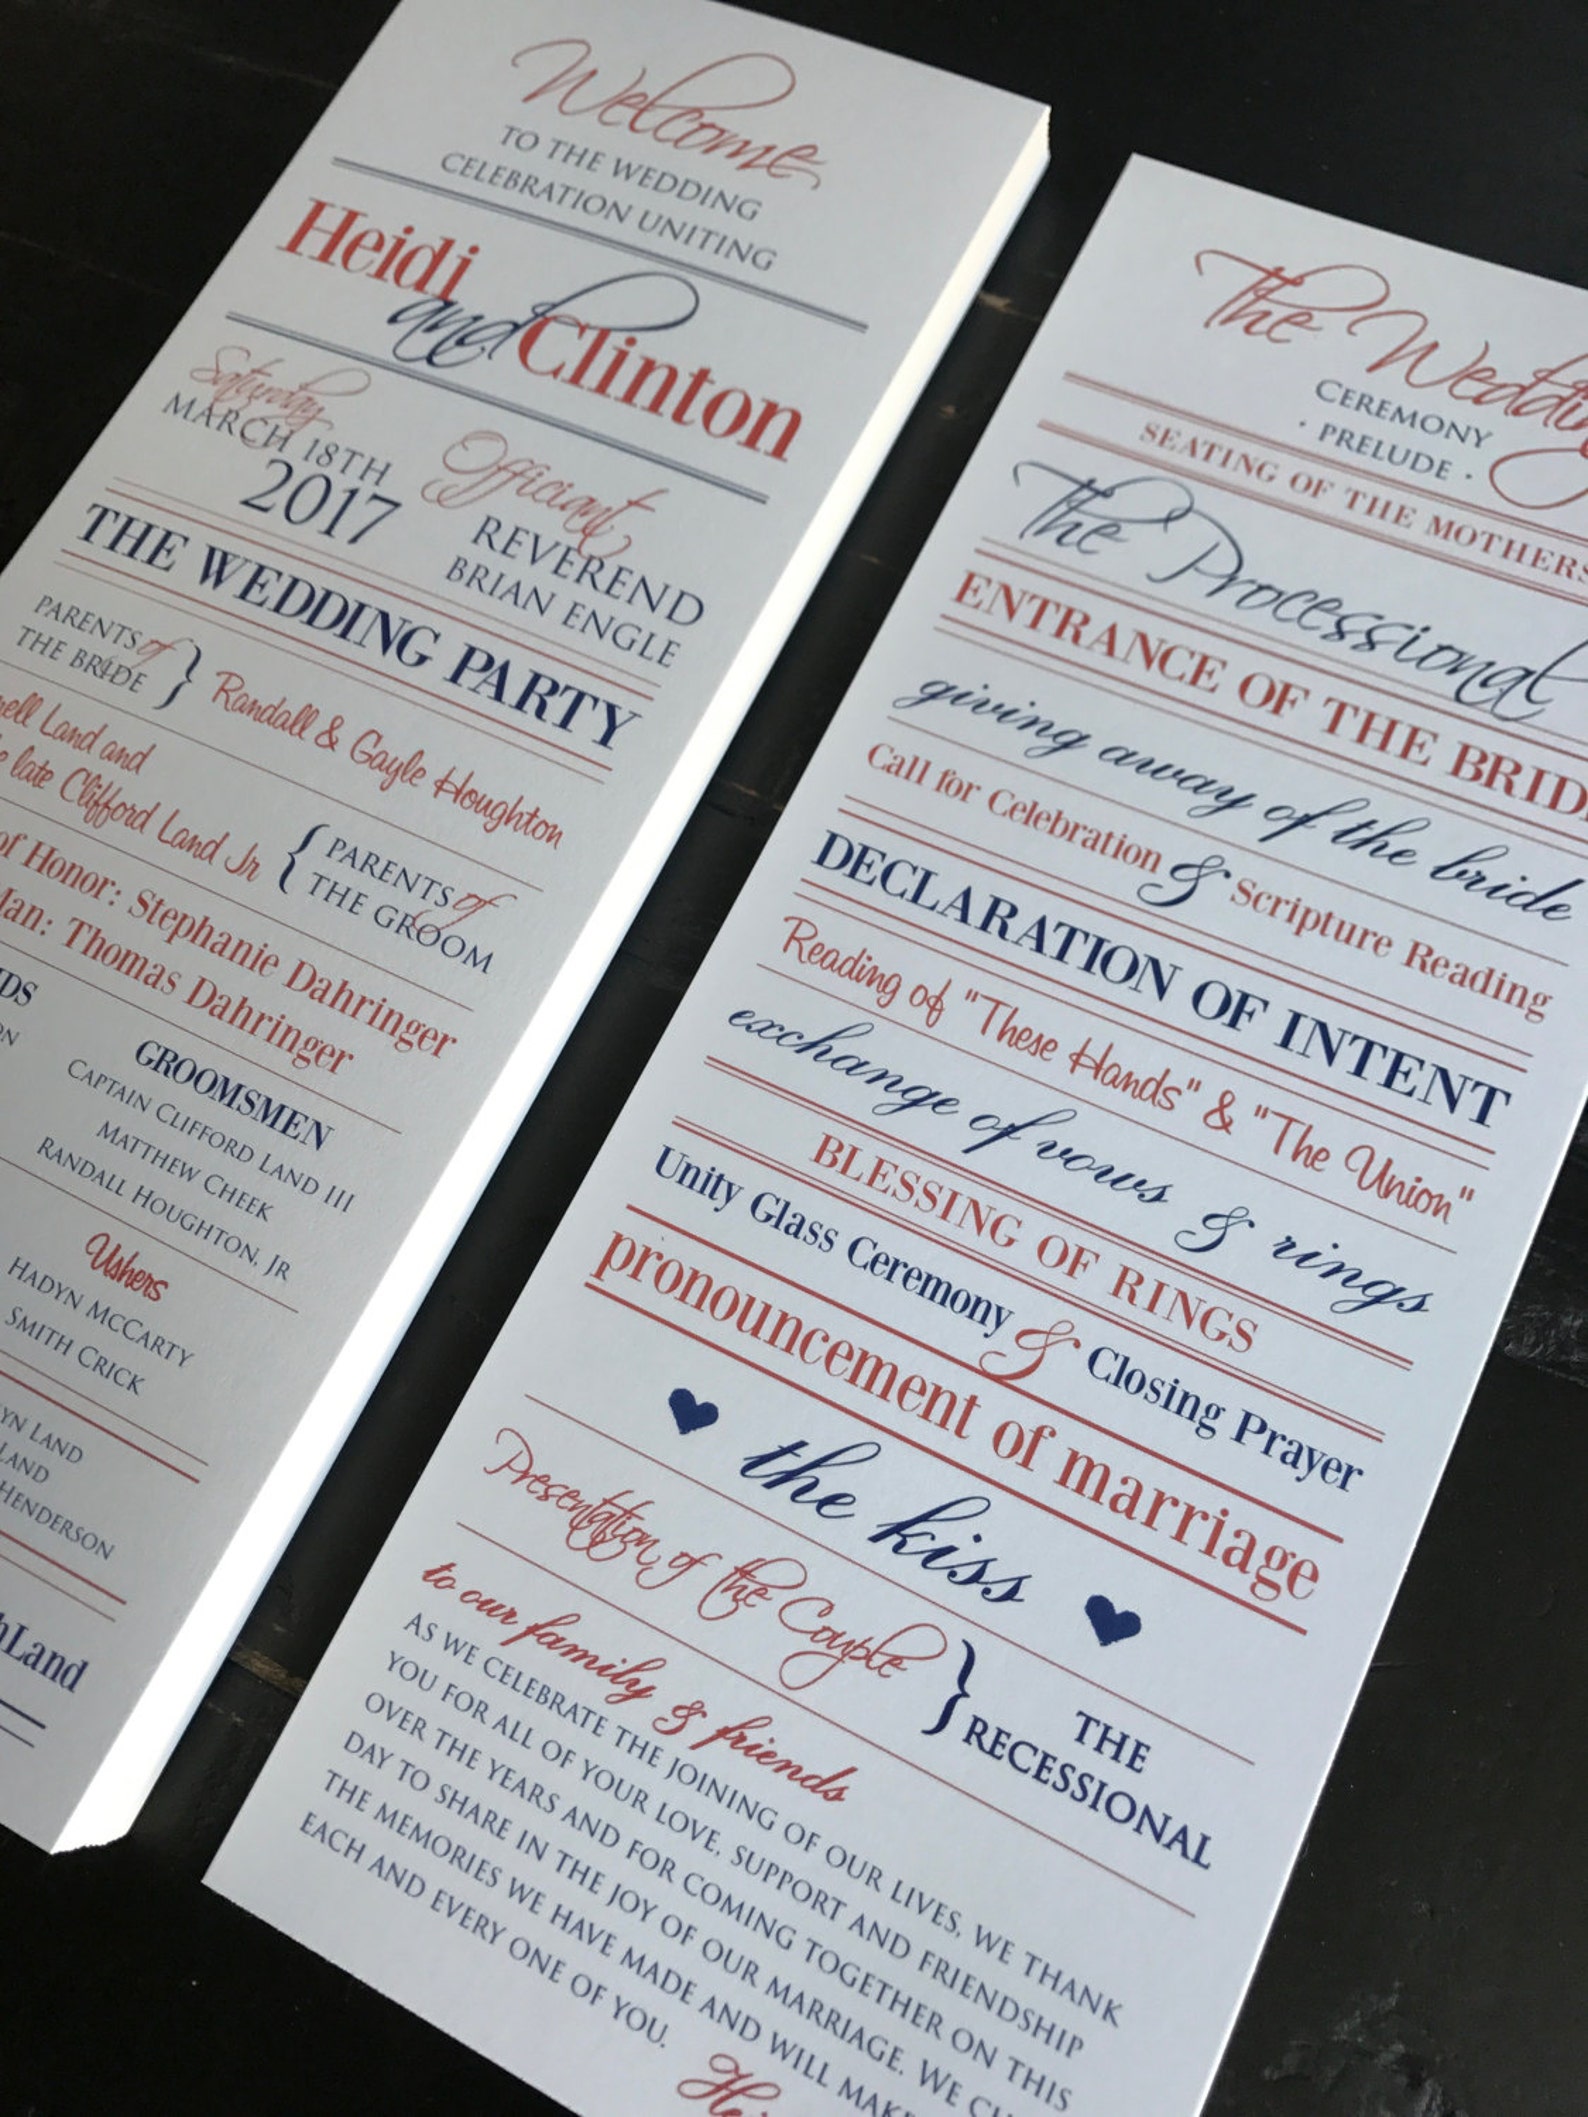 Welcome
TO THE WEDDING
CELEBRATION UNITING
Heidi
and Clinton
Saturday
MARCH 18TH
2017
Officiant
REVEREND
BRIAN ENGLE
THE WEDDING PARTY
PARENTS of
THE BRIDE } Randall & Gayle Houghton
Land and
late Clifford Land Jr { PARENTS of
THE GROOM
of Honor: Stephanie Dahringer
Thomas Dahringer
GROOMSMEN
CAPTAIN CLIFFORD LAND III
MATTHEW CHEEK
RANDALL HOUGHTON, JR
Ushers
HADYN MCCARTY
SMITH CRICK
LAND
LAND
HENDERSON
Land
The Wedding
CEREMONY
· PRELUDE ·
SEATING OF THE MOTHERS
The Processional
ENTRANCE OF THE BRIDE
giving away of the bride
Call for Celebration & Scripture Reading
DECLARATION OF INTENT
Reading of "These Hands" & "The Union"
exchange of vows & rings
BLESSING OF RINGS
Unity Glass Ceremony & Closing Prayer
pronouncement of marriage
the kiss
Presentation of the Couple } THE
RECESSIONAL
to our family & friends
AS WE CELEBRATE THE JOINING OF OUR LIVES, WE THANK
YOU FOR ALL OF YOUR LOVE, SUPPORT AND FRIENDSHIP
OVER THE YEARS AND FOR COMING TOGETHER ON THIS
DAY TO SHARE IN THE JOY OF OUR MARRIAGE. WE
THE MEMORIES WE HAVE MADE AND WILL MAKE
EACH AND EVERY ONE OF YOU.